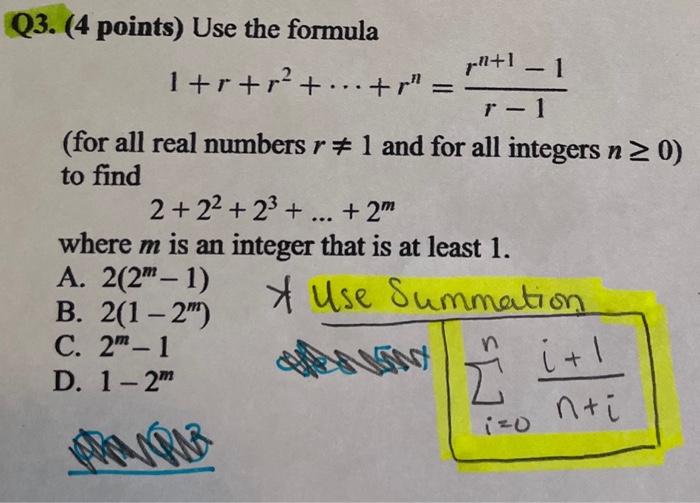 Q3. (4 points) Use the formula
1 + r + r² + ⋯ + rⁿ = (rⁿ⁺¹ − 1)/(r − 1)
(for all real numbers r ≠ 1 and for all integers n ≥ 0)
to find
2 + 2² + 2³ + ... + 2ᵐ
where m is an integer that is at least 1.
A. 2(2ᵐ – 1)
B. 2(1 – 2ᵐ)
C. 2ᵐ – 1
D. 1 – 2ᵐ
* Use Summation
n
∑ (i+1)/(n+i)
i=0